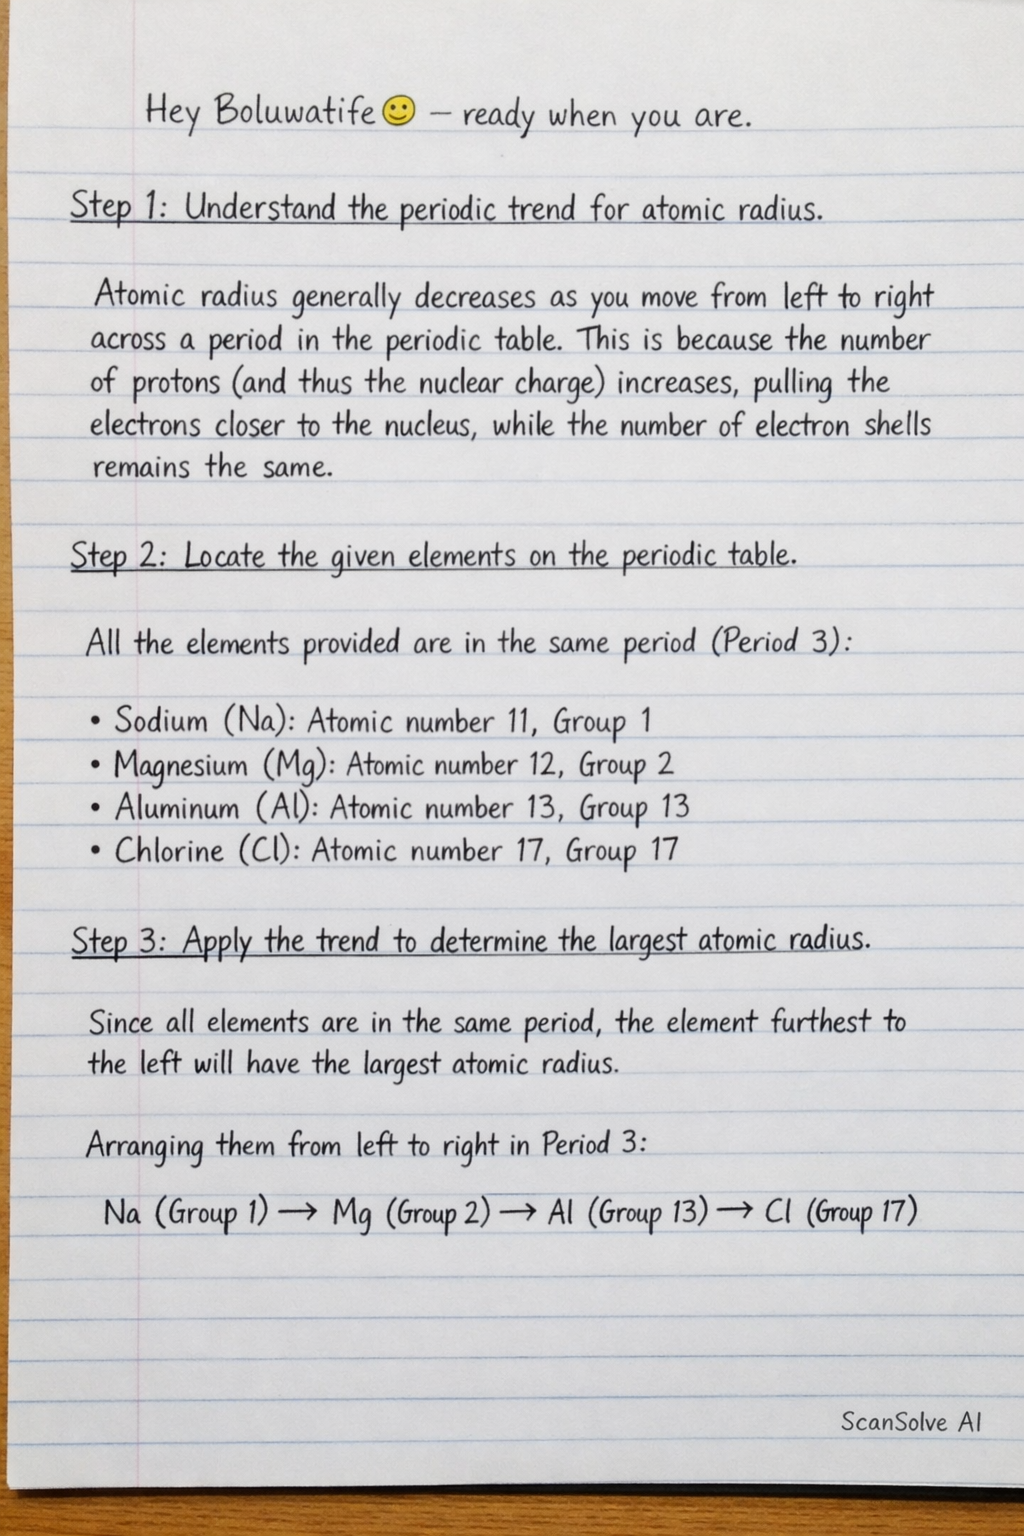 Hey Boluwatife🙂 – ready when you are.
Step 1: Understand the periodic trend for atomic radius.
Atomic radius generally decreases as you move from left to right
across a period in the periodic table. This is because the number
of protons (and thus the nuclear charge) increases, pulling the
electrons closer to the nucleus, while the number of electron shells
remains the same.
Step 2: Locate the given elements on the periodic table.
All the elements provided are in the same period (Period 3):
• Sodium (Na): Atomic number 11, Group 1
• Magnesium (Mg): Atomic number 12, Group 2
• Aluminum (Al): Atomic number 13, Group 13
• Chlorine (Cl): Atomic number 17, Group 17
Step 3: Apply the trend to determine the largest atomic radius.
Since all elements are in the same period, the element furthest to
the left will have the largest atomic radius.
Arranging them from left to right in Period 3:
Na (Group 1) → Mg (Group 2) → Al (Group 13) → Cl (Group 17)
ScanSolve AI